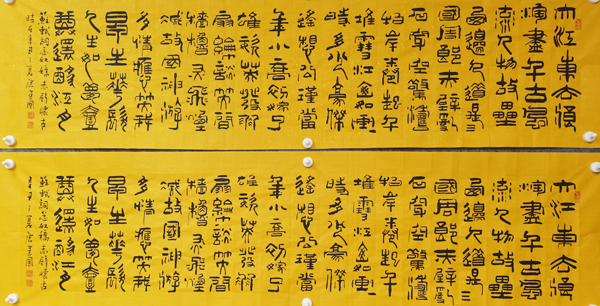 大江東去浪
淘盡千古風
流人物故壘
西邊人道是三
國周郎赤壁亂
石穿空驚濤
拍岸卷起千
堆雪江山如畫一
時多少豪傑
遙想公瑾當
年小喬初嫁了
雄姿英發羽
扇綸巾談笑間
檣櫓灰飛煙
滅故國神游
多情應笑我
早生華髮
人生如夢一
尊還酹江月
蘇軾詞念奴嬌赤壁懷古
大江東去浪
淘盡千古風
流人物故壘
西邊人道是三
國周郎赤壁亂
石穿空驚濤
拍岸卷起千
堆雪江山如畫一
時多少豪傑
遙想公瑾當
年小喬初嫁了
雄姿英發羽
扇綸巾談笑間
檣櫓灰飛煙
滅故國神游
多情應笑我
早生華髮
人生如夢一
尊還酹江月
蘇軾詞念奴嬌赤壁懷古